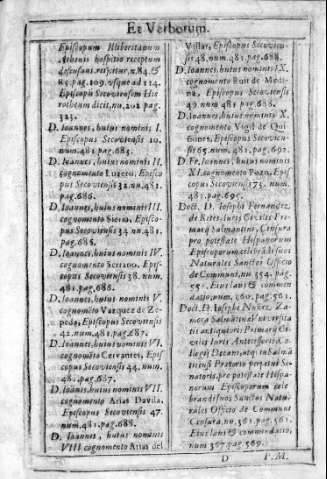 Et Verborum.
Episcopum Illiberitanum
hospitio receptum
n. 84. &
pag. 109. usque ad 114.
Episcopũ Secoviensem Hie
rotheum dicit, nu. 202 pag.
323.
D. Ioannes, huius nominis I.
Episcopus Secoviensis 20.
num. 481. pag. 683.
D. Ioannes, huius nominis II.
cognomento Episco
pus Secoviensis 32. nu. 481.
pag. 686.
D. Ioannes, huius nominis III.
cognomento Episco-
pus Secoviensis 34. nu. 481.
pag. 685.
D. Ioannes, huius nominis IV.
cognomento Serrano, Epis-
copus Secoviensis 38. num.
481. pag. 686.
D. Ioannes, huius nominis V.
cognomẽto Vazquez de Ze-
peda, Episcopus Secoviensis
42. num. 481. pag. 687.
D. Ioannes, huius nominis VI.
cognomẽto Cervantes, Epis
copus Secoviensis 44. num.
481. pag. 687.
D. Ioannes, huius nominis VII.
cognomento Arias Davila,
Episcopus Secoviensis 47.
num. 481. pag. 688.
D. Ioannes, huius nominis
VIII cognomento Arias del
Villar, Episcopus Secovien-
sis 48. num. 481. pag. 688.
D. Ioannes, huius nominis IX.
cognomento Ruiz de Medi-
na, Episcopus Secoviensis
49. num. 481. pag. 688.
D. Ioannes, huius nominis X.
cognomento Vigil de Qui
ñones, Episcopus Secovien-
sis 65. num. 481. pag. 692.
D. Fr. Ioannes, huius nominis
XI. cognomento Epis
copus Secoviensis 75. num.
481. pag. 695.
Doct. D. Ioseph Fernandez,
de Retes, Iuris Civilis Pri-
marij Salmantini, Censura
pro potestate Hispanorum
Episcoporum celebrãdi suos
Naturales Sanctos Officio
de Communi, nu. 354. pag.
Eius laus & commen
datio, num. 360. pag. 561.
Doct. D. Ioseph Nuñez, Za-
mora Salmãtinæ Vniversita
tis antiquioris Primarij Ci-
vilis Iuris Antecessoris, Co
legij Decani, atq; in Salmã
ticensi Pretorio perpetui Se-
natoris, pro potestate Hispa-
norum Episcoporum cele
brandi suos Sanctos Natu-
rales Officio de Communi
Censura, nu. 361. pag. 561.
Eius laus & commendatio,
num. 367. pag. 569.
D P. M.